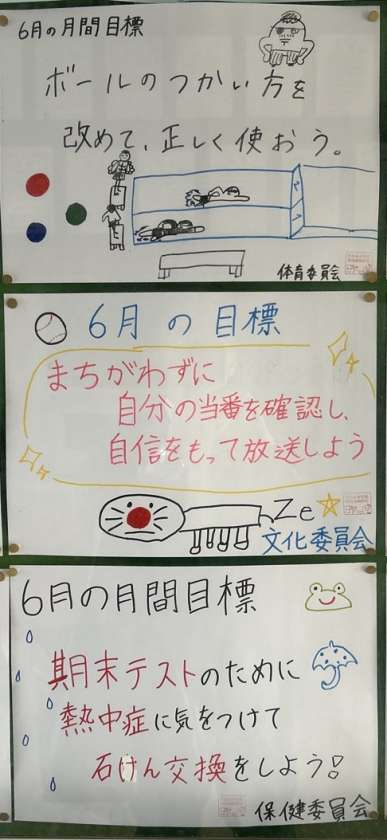 6月の月間目標
ボールのつかい方を
改めて、正しく使おう。
体育委員会
6月の目標
まちがわずに
自分の当番を確認し、
自信をもって放送しよう
Ze
文化委員会
6月の月間目標
期末テストのために
熱中症に気をつけて
石けん交換をしよう!
保健委員会